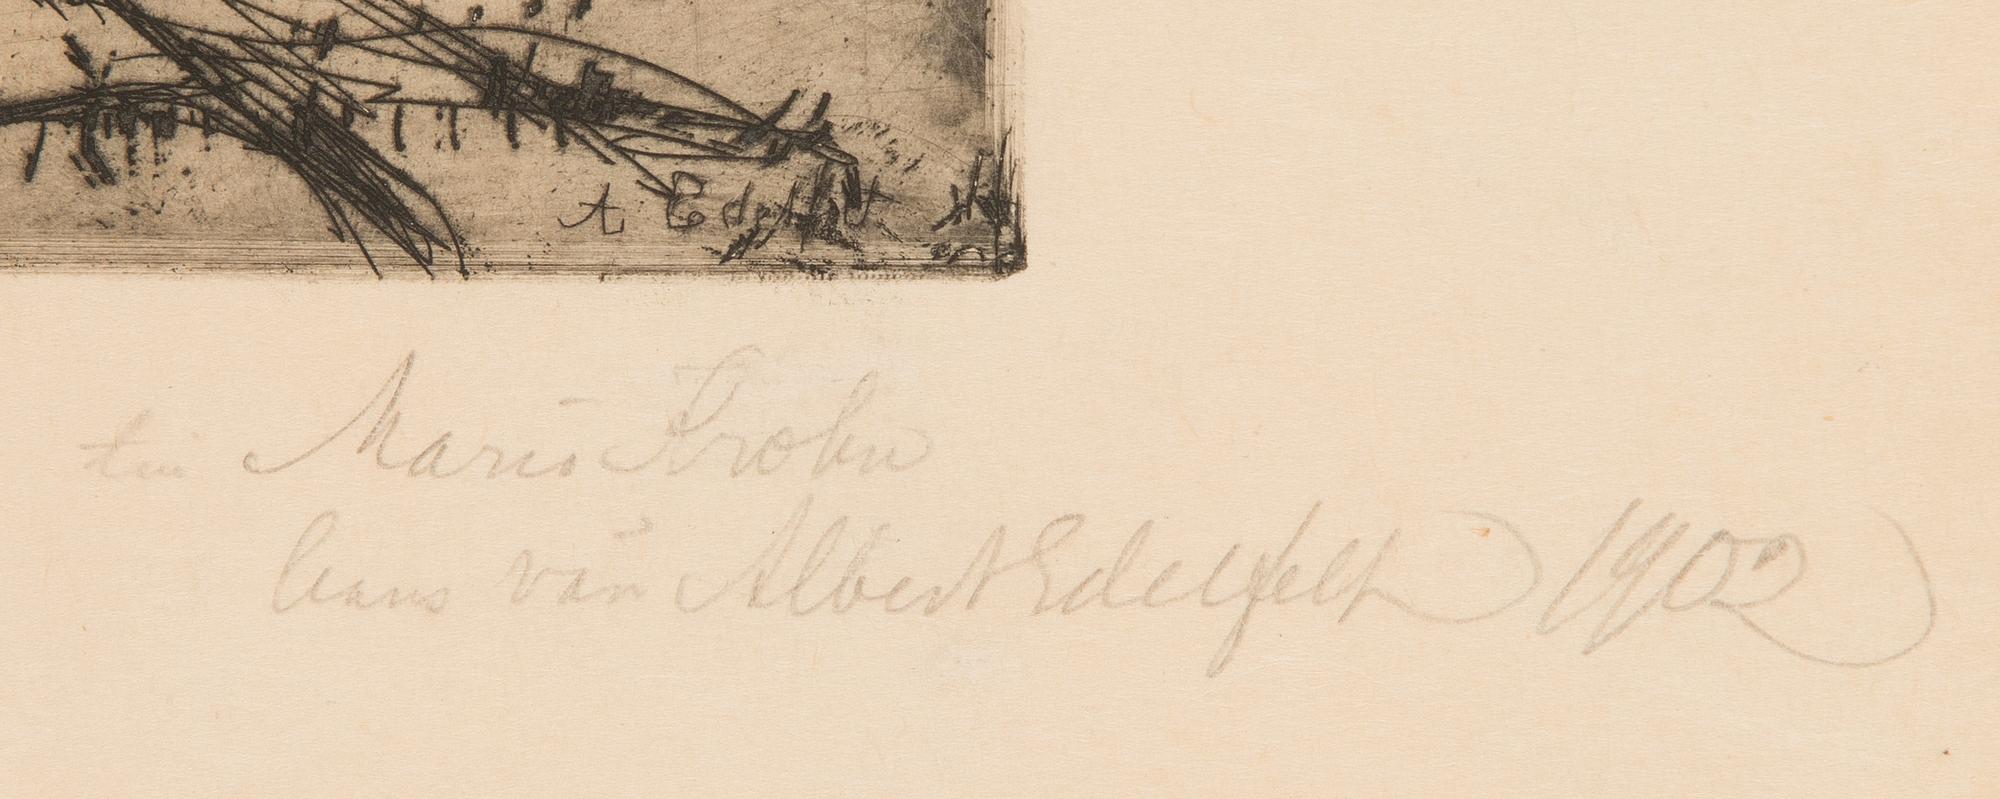 A Edelfelt
till Mario Krohn
hans vän Albert Edelfelt 1902